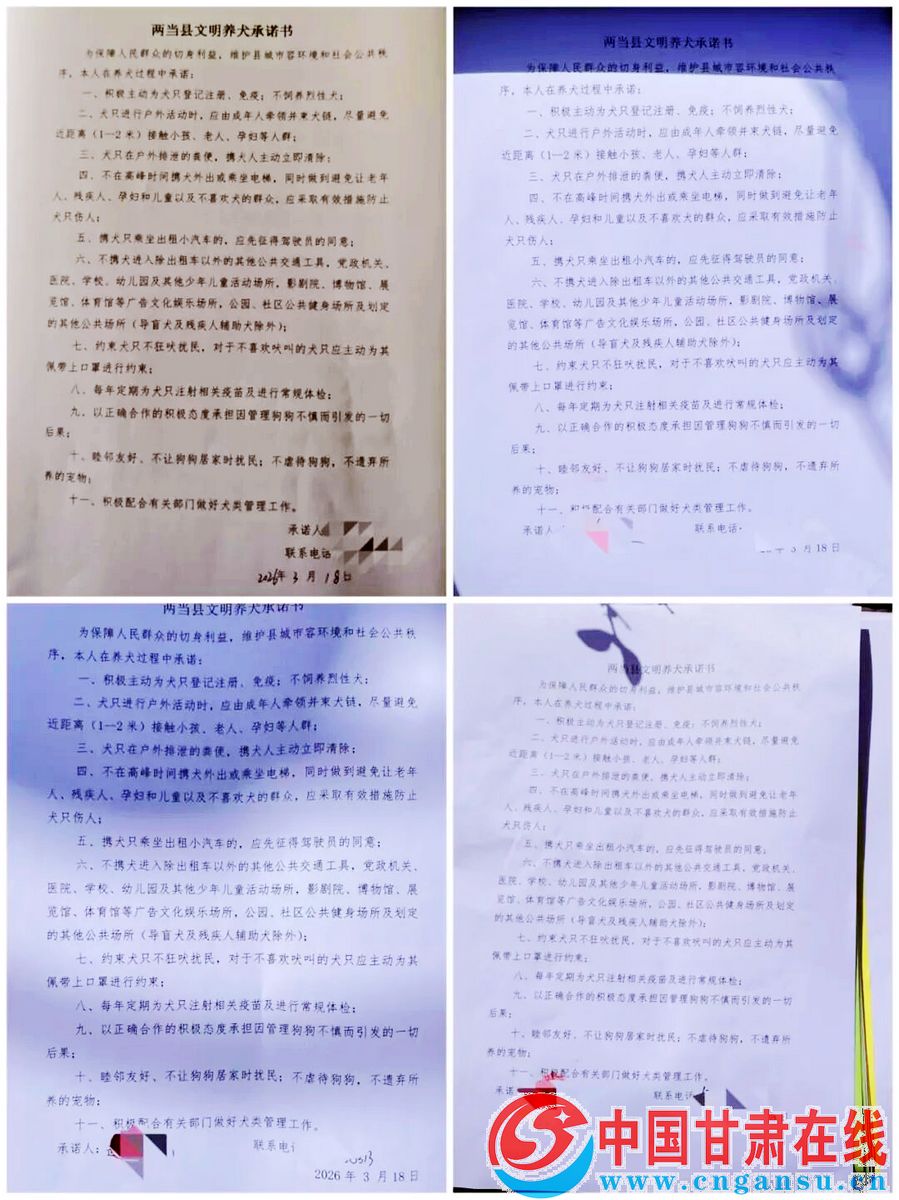 两当县文明养犬承诺书
为保障人民群众的切身利益，维护县城市容环境和社会公共秩
序，本人在养犬过程中承诺：
一、积极主动为犬只登记注册、免疫；不饲养烈性犬；
二、犬只进行户外活动时，应由成年人牵领并束犬链，尽量避免
近距离（1—2米）接触小孩、老人、孕妇等人群；
三、犬只在户外排泄的粪便，携犬人主动立即清除；
四、不在高峰时间携犬外出或乘坐电梯，同时做到避免让老年
人、残疾人、孕妇和儿童以及不喜欢犬的群众，应采取有效措施防止
犬只伤人；
五、携犬只乘坐出租小汽车的，应先征得驾驶员的同意；
六、不携犬进入除出租车以外的其他公共交通工具，党政机关、
医院、学校、幼儿园及其他少年儿童活动场所，影剧院、博物馆、展
览馆、体育馆等广告文化娱乐场所，公园、社区公共健身场所及划定
的其他公共场所（导盲犬及残疾人辅助犬除外）；
七、约束犬只不狂吠扰民，对于不喜欢吠叫的犬只应主动为其
佩带上口罩进行约束；
八、每年定期为犬只注射相关疫苗及进行常规体检；
九、以正确合作的积极态度承担因管理狗狗不慎而引发的一切
后果；
十、睦邻友好、不让狗狗居家时扰民；不虐待狗狗，不遗弃所
养的宠物；
十一、积极配合有关部门做好犬类管理工作。
承诺人
联系电话
2026年 3 月 18日
两当县文明养犬承诺书
为保障人民群众的切身利益，维护县城市容环境和社会公共秩
序，本人在养犬过程中承诺：
一、积极主动为犬只登记注册、免疫；不饲养烈性犬；
二、犬只进行户外活动时，应由成年人牵领并束犬链，尽量避免
近距离（1—2米）接触小孩、老人、孕妇等人群；
三、犬只在户外排泄的粪便，携犬人主动立即清除；
四、不在高峰时间携犬外出或乘坐电梯，同时做到避免让老年
人、残疾人、孕妇和儿童以及不喜欢犬的群众，应采取有效措施防止
犬只伤人；
五、携犬只乘坐出租小汽车的，应先征得驾驶员的同意；
六、不携犬进入除出租车以外的其他公共交通工具，党政机关、
医院、学校、幼儿园及其他少年儿童活动场所，影剧院、博物馆、展
览馆、体育馆等广告文化娱乐场所，公园、社区公共健身场所及划定
的其他公共场所（导盲犬及残疾人辅助犬除外）；
七、约束犬只不狂吠扰民，对于不喜欢吠叫的犬只应主动为其
佩带上口罩进行约束；
八、每年定期为犬只注射相关疫苗及进行常规体检；
九、以正确合作的积极态度承担因管理狗狗不慎而引发的一切
后果；
十、睦邻友好、不让狗狗居家时扰民；不虐待狗狗，不遗弃所
养的宠物；
十一、积极配合有关部门做好犬类管理工作。
承诺人 联系电话
年 3 月 18 日
两当县文明养犬承诺书
为保障人民群众的切身利益，维护县城市容环境和社会公共秩
序，本人在养犬过程中承诺：
一、积极主动为犬只登记注册、免疫；不饲养烈性犬；
二、犬只进行户外活动时，应由成年人牵领并束犬链，尽量避免
近距离（1—2米）接触小孩、老人、孕妇等人群；
三、犬只在户外排泄的粪便，携犬人主动立即清除；
四、不在高峰时间携犬外出或乘坐电梯，同时做到避免让老年
人、残疾人、孕妇和儿童以及不喜欢犬的群众，应采取有效措施防止
犬只伤人；
五、携犬只乘坐出租小汽车的，应先征得驾驶员的同意；
六、不携犬进入除出租车以外的其他公共交通工具，党政机关、
医院、学校、幼儿园及其他少年儿童活动场所，影剧院、博物馆、展
览馆、体育馆等广告文化娱乐场所，公园、社区公共健身场所及划定
的其他公共场所（导盲犬及残疾人辅助犬除外）；
七、约束犬只不狂吠扰民，对于不喜欢吠叫的犬只应主动为其
佩带上口罩进行约束；
八、每年定期为犬只注射相关疫苗及进行常规体检；
九、以正确合作的积极态度承担因管理狗狗不慎而引发的一切
后果；
十、睦邻友好、不让狗狗居家时扰民；不虐待狗狗，不遗弃所
养的宠物；
十一、积极配合有关部门做好犬类管理工作。
承诺人： 联系电
2026 年 3 月 18 日
两当县文明养犬承诺书
为保障人民群众的切身利益，维护县城市容环境和社会公共秩
序，本人在养犬过程中承诺：
一、积极主动为犬只登记注册、免疫；不饲养烈性犬；
二、犬只进行户外活动时，应由成年人牵领并束犬链，尽量避免
近距离（1—2米）接触小孩、老人、孕妇等人群；
三、犬只在户外排泄的粪便，携犬人主动立即清除；
四、不在高峰时间携犬外出或乘坐电梯，同时做到避免让老年
人、残疾人、孕妇和儿童以及不喜欢犬的群众，应采取有效措施防止
犬只伤人；
五、携犬只乘坐出租小汽车的，应先征得驾驶员的同意；
六、不携犬进入除出租车以外的其他公共交通工具，党政机关、
医院、学校、幼儿园及其他少年儿童活动场所，影剧院、博物馆、展
览馆、体育馆等广告文化娱乐场所，公园、社区公共健身场所及划定
的其他公共场所（导盲犬及残疾人辅助犬除外）；
七、约束犬只不狂吠扰民，对于不喜欢吠叫的犬只应主动为其
佩带上口罩进行约束；
八、每年定期为犬只注射相关疫苗及进行常规体检；
九、以正确合作的积极态度承担因管理狗狗不慎而引发的一切
后果；
十、睦邻友好、不让狗狗居家时扰民；不虐待狗狗，不遗弃所
养的宠物；
十一、积极配合有关部门做好犬类管理工作。
承诺 联系电话
中国甘肃在线
www.cngansu.cn